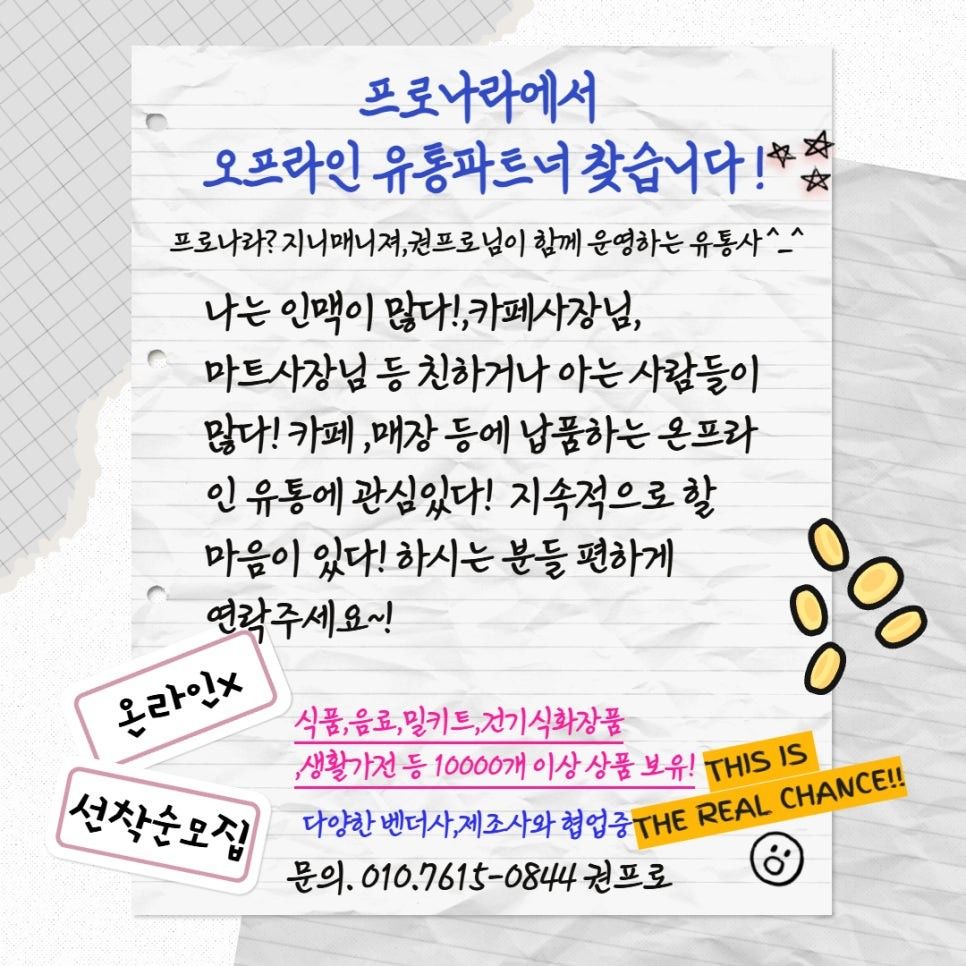 프로나라에서
오프라인 유통파트너 찾습니다!
프로나라? 지니매니져,권프로님이 함께 운영하는 유통사^_^
나는 인맥이 많다!,카페사장님,
마트사장님 등 친하거나 아는 사람들이
많다! 카페 ,매장 등에 납품하는 온프라
인 유통에 관심있다! 지속적으로 할
마음이 있다! 하시는 분들 편하게
연락주세요~!
온라인x
선착순모집
식품,음료,밀키트,건기식화장품
,생활가전 등 10000개 이상 상품 보유!
THIS IS
THE REAL CHANCE!!
다양한 벤더사,제조사와 협업중
문의. 010.7615-0844 권프로